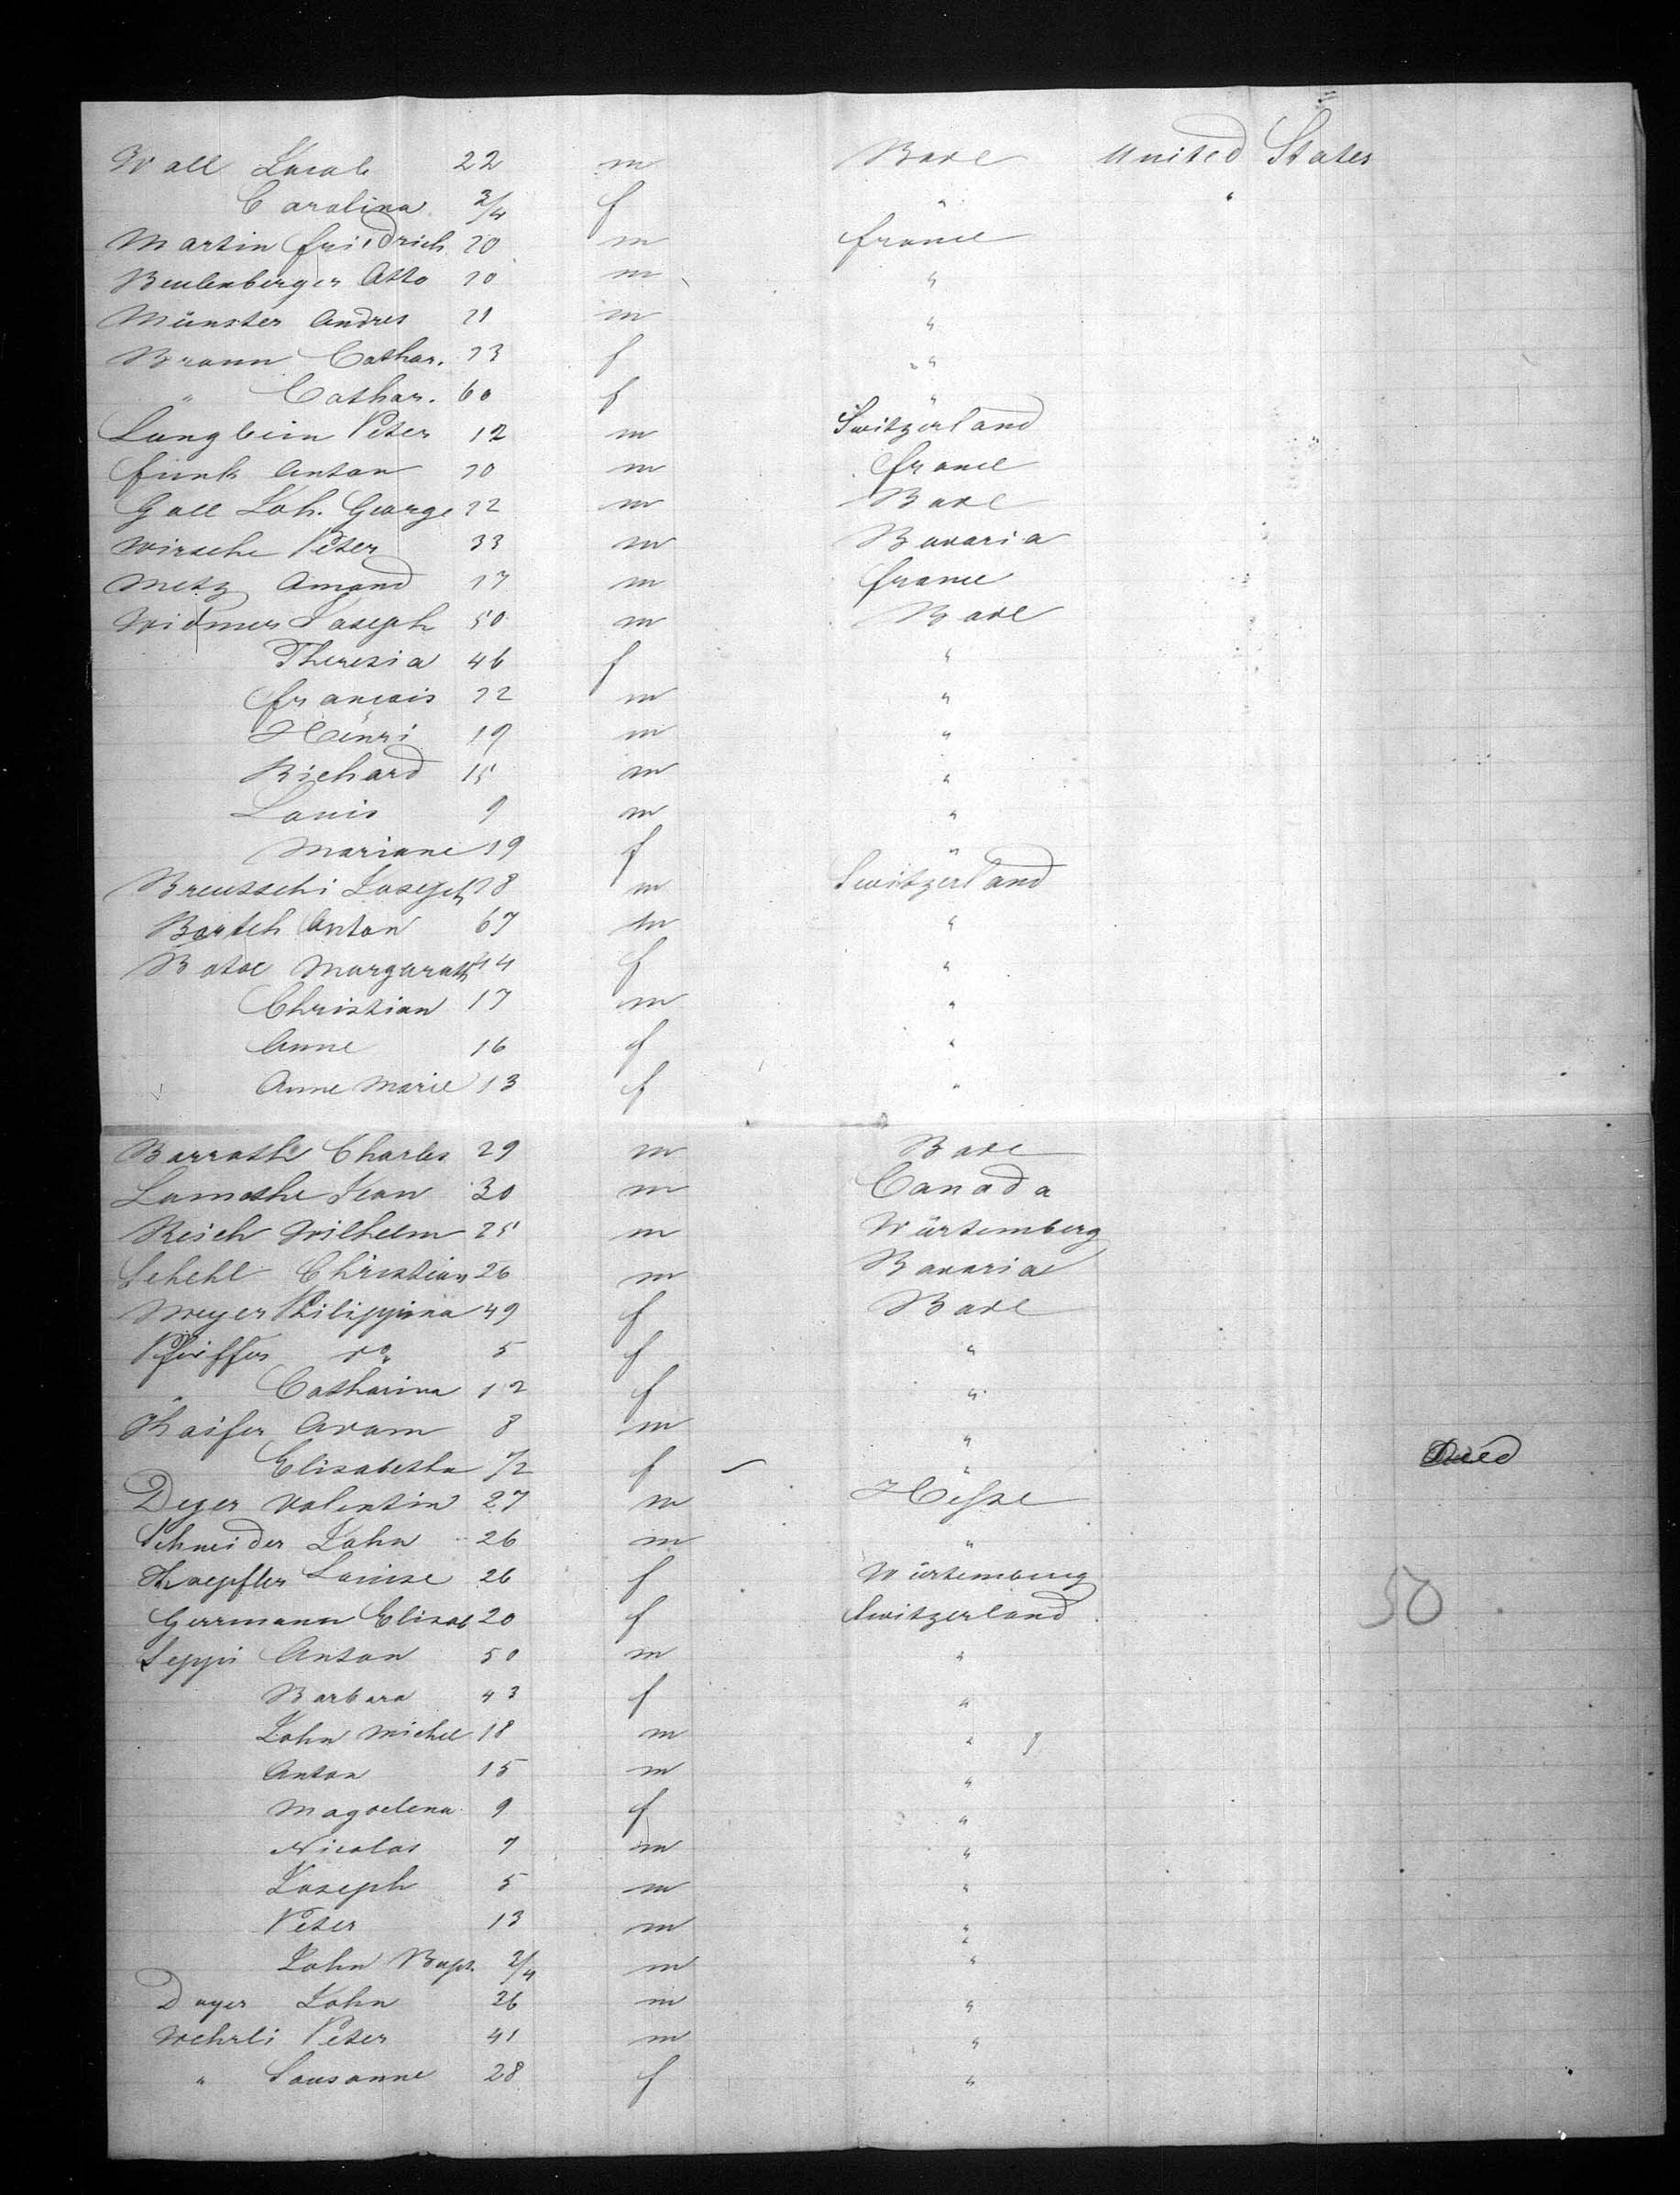 Wall Jacob 22 m Bade United States
Carolina 3/4 f " "
Martin friedrich 20 m france
Beulenberger Otto 20 m "
Münster Andres 21 m "
Braun Cathar. 23 f "
" Cathar. 60 f "
Langbein Peter 12 m Switzerland
funk Anton 20 m france
Gall Joh. George 22 m Bade
Wirsche Peter 33 m Bavaria
Metz Amand 17 m france
Widmer Joseph 50 m Bade
Theresia 46 f "
françois 22 m "
Henri 19 m "
Richard 15 m "
Louis 9 m "
Mariane 19 f "
Joseph 28 m Switzerland
Bartch Anton 67 m "
Margarath 44 f "
Christian 17 m "
Anne 16 f "
Anne Marie 13 f "
Barrath Charles 29 m Bade
Lamothe Jean 30 m Canada
Reich Wilhelm 25 m Würtemberg
Schehl Christian 26 m Bavaria
Meyer Philippina 49 f Bade
Pfeiffer do 5 f "
" Catharina 12 f "
Adam 8 m "
Elisabetha 1/2 f " Died
Deyer Valentin 27 m Hesse
Schneider John 26 m "
Louise 26 f Würtemberg
Germann Elisab 20 f Switzerland 50
Seppi Anton 50 m "
Barbara 43 f "
John Michel 18 m "
Anton 15 m "
Magdelena 9 f "
Nicolas 7 m "
Joseph 5 m "
Peter 13 m "
John Bapt. 3/4 m "
Dayer John 26 m "
Wehrli Peter 41 m "
" Sousanne 28 f "